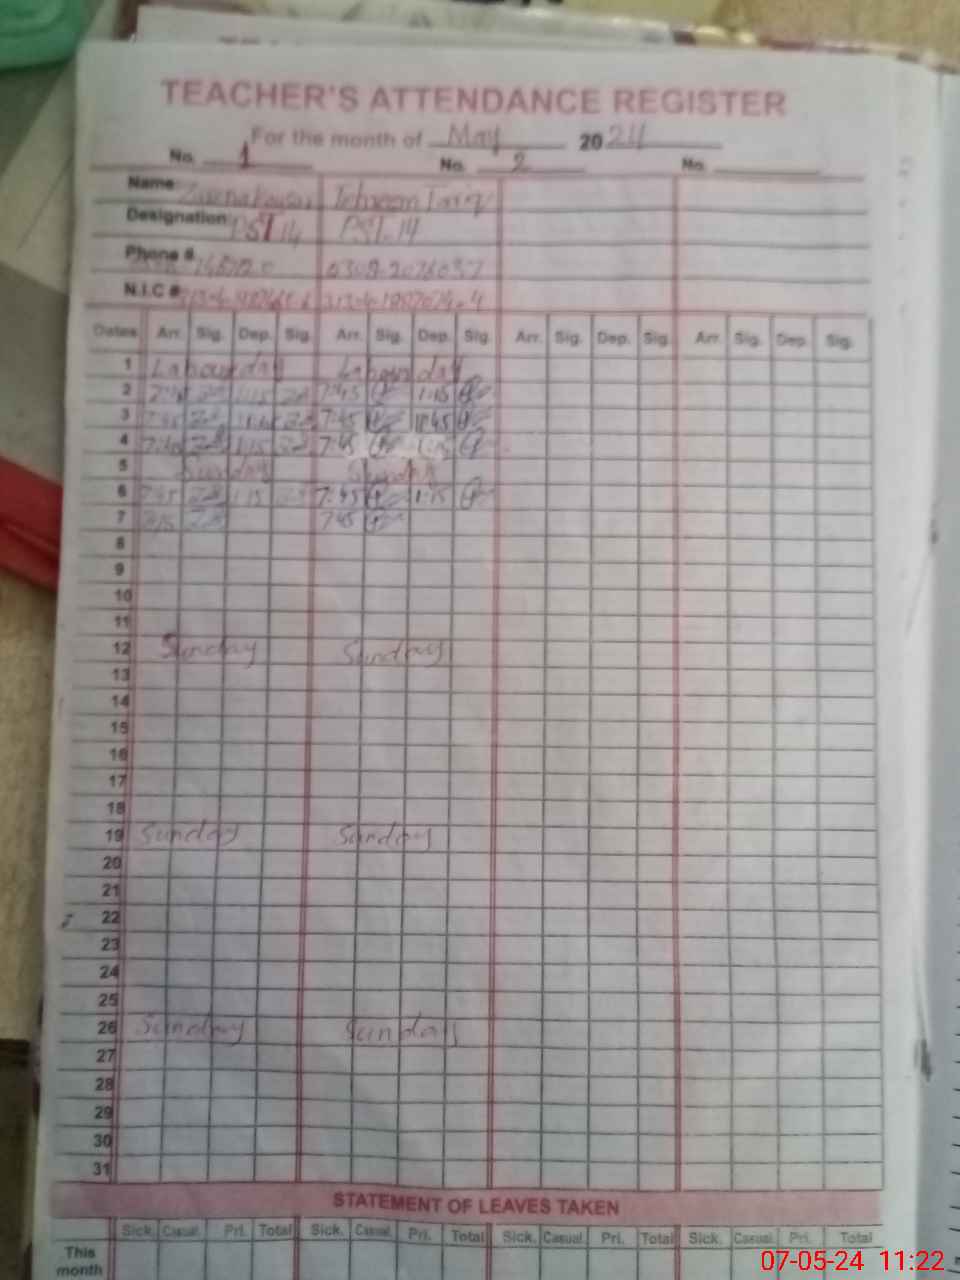 TEACHER'S ATTENDANCE REGISTER
For the month of May 2024
No. 1 No. 2 No.
Name: Tehreem Tariq
Designation: PST 14 PST-14
Phone #
N.I.C #
Dates Arr. Sig. Dep. Sig. Arr. Sig. Dep. Sig. Arr. Sig. Dep. Sig. Arr. Sig. Dep. Sig.
1 Labour day Labour day
2 1:15 7:45 1:15
3 7:45 7:45
4 7:40 1:15 7:45 1:15
5 Sunday Sunday
6 7:45 1:15 7:45 1:15
7 745
8
9
10
11
12 Sunday Sunday
13
14
15
16
17
18
19 Sunday Sunday
20
21
22
23
24
25
26 Sunday Sunday
27
28
29
30
31
STATEMENT OF LEAVES TAKEN
Sick. Casual. Pri. Total Sick. Casual. Pri. Total Sick. Casual. Pri. Total Sick. Casual. Pri. Total
This
month
07-05-24 11:22